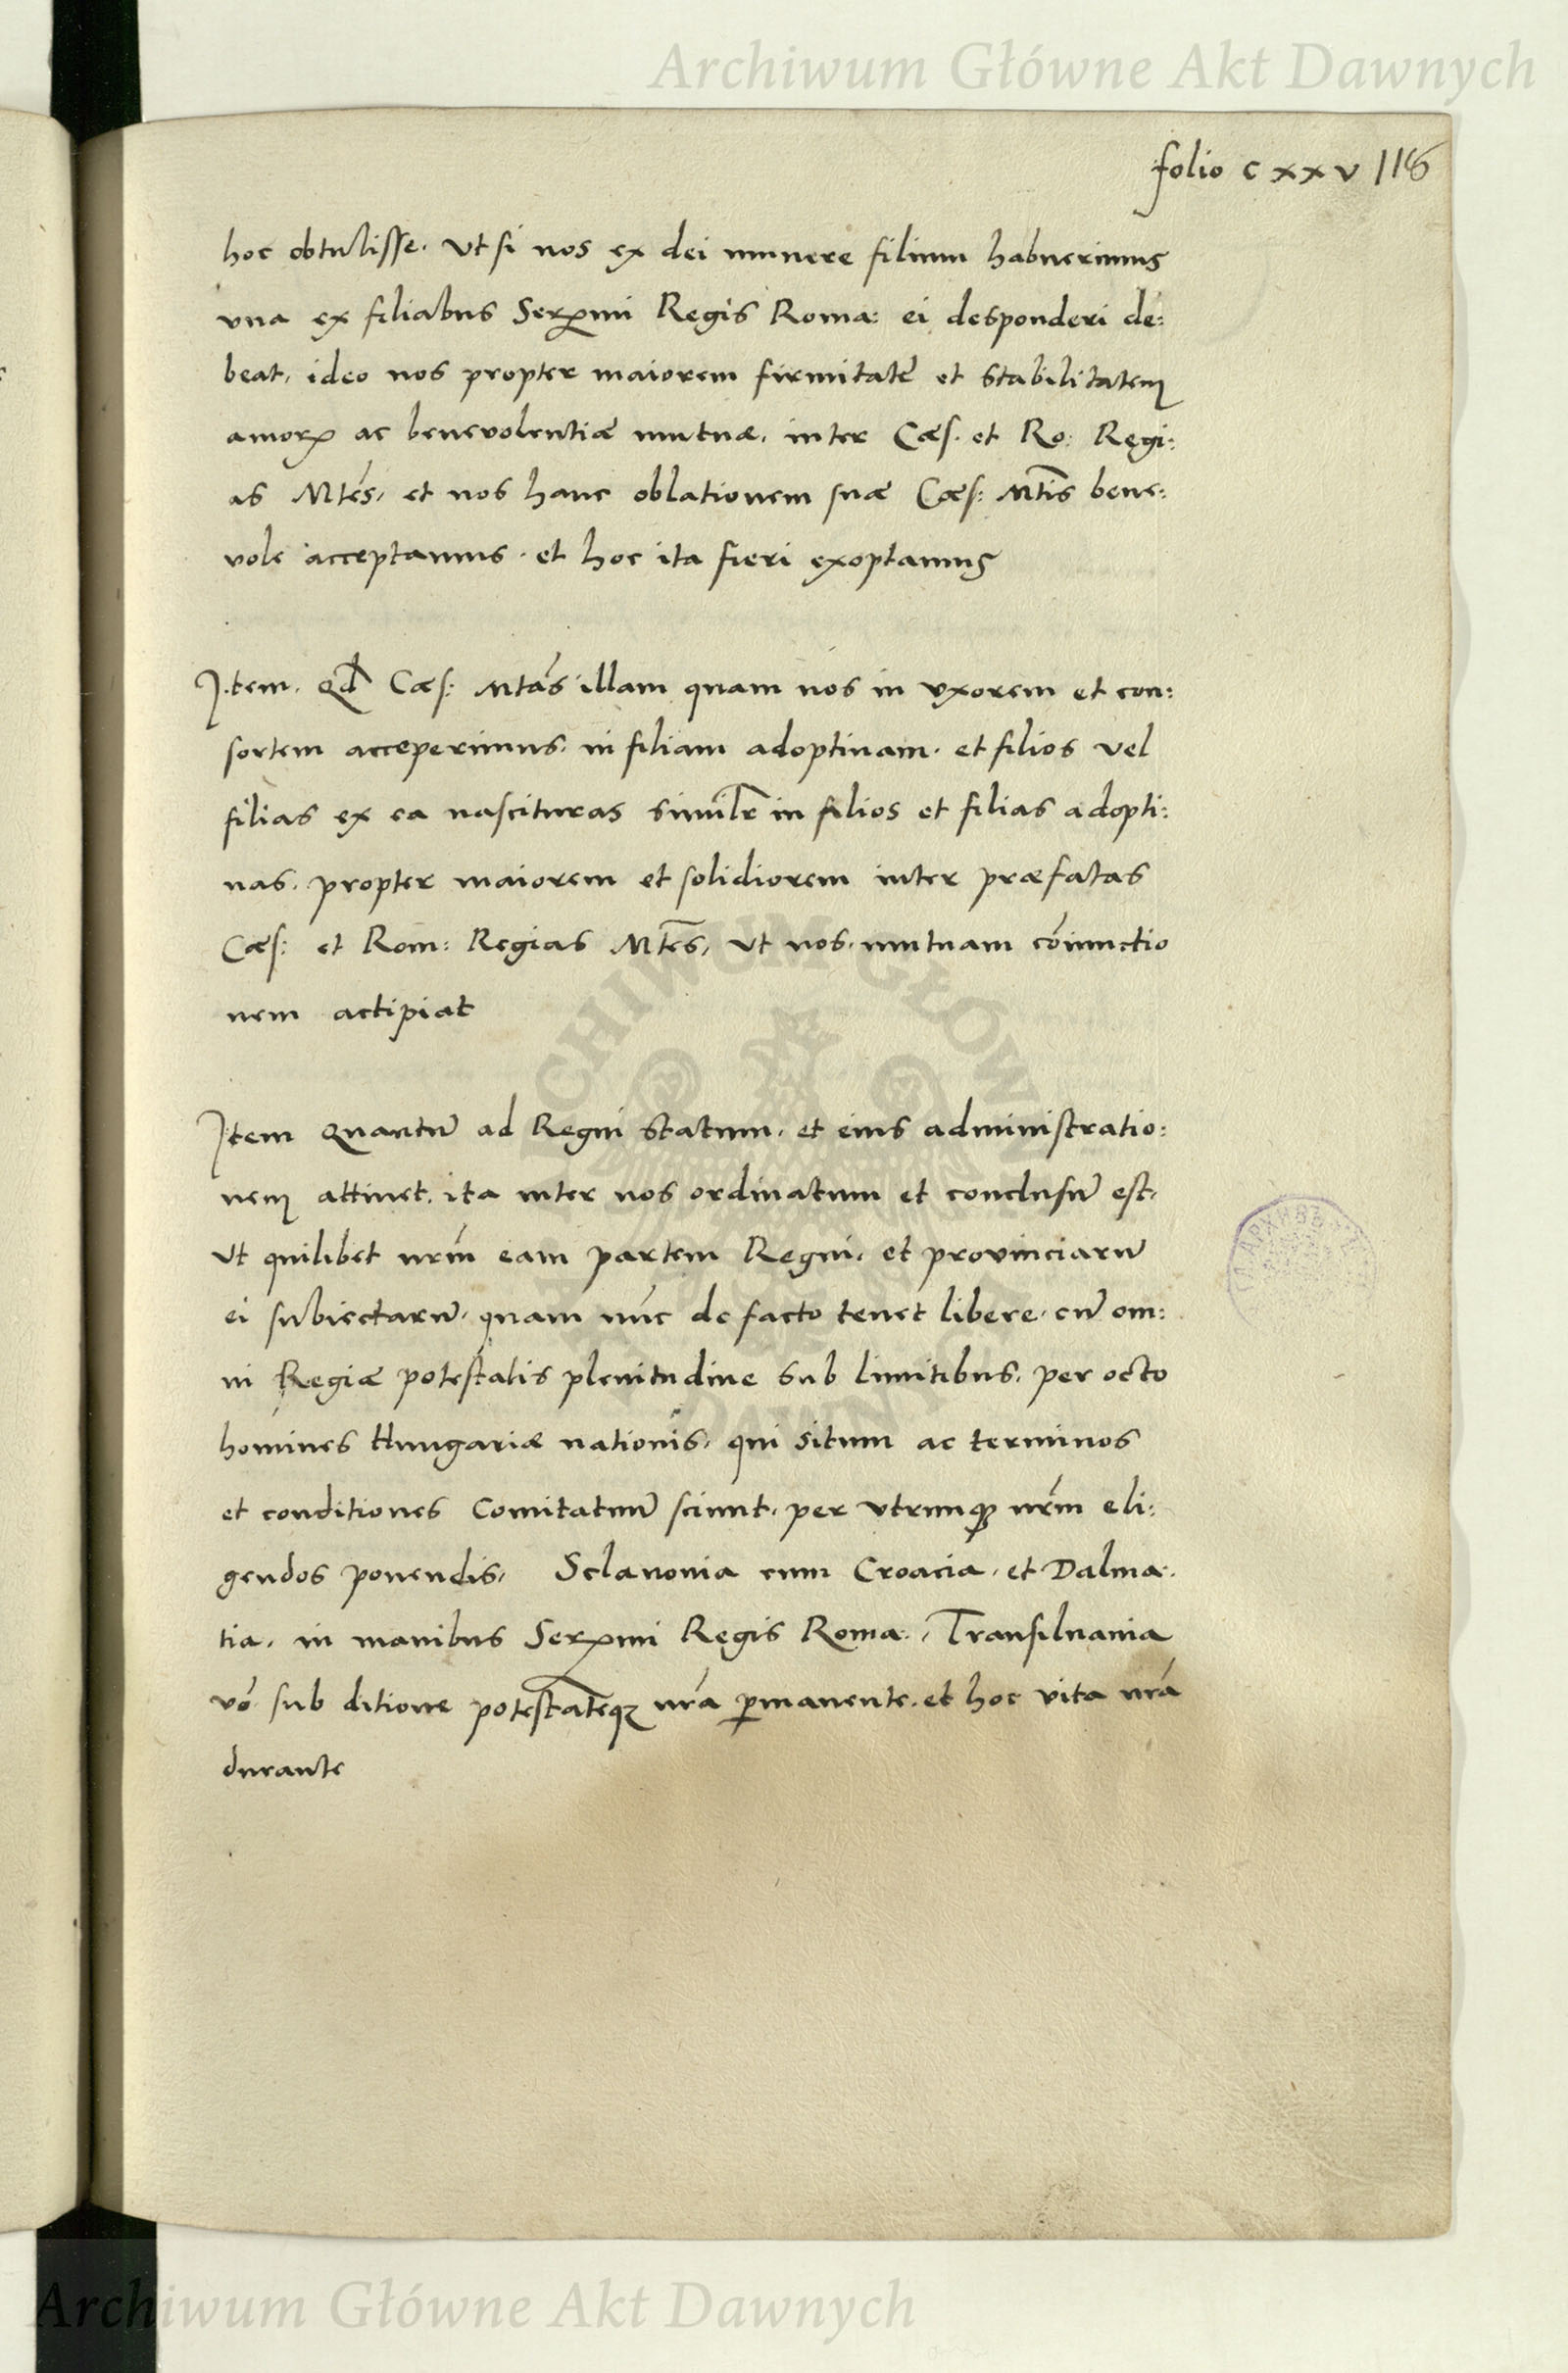 Archiwum Główne Akt Dawnych
folio c x x v 116
hoc obtulisse. Vt si nos ex dei munere filium habuerimus
vna ex filiabus Serꝑmi Regis Roma: ei desponderi de:
beat, ideo nos propter maiorem firmitatē et stabilitatem
amorꝝ ac benevolentiæ mutuæ, inter Cæs. et Ro: Regi:
as Mtēs, et nos hanc oblationem suæ Cæs: Mtis bene:
vole acceptamus. et hoc ita fieri exoptamus
Item. Qd Cæs: Mtas illam quam nos in vxorem et con:
sortem acceperimus. in filiam adoptiuam. et filios vel
filias ex ea nascituras similr in filios et filias adopti:
uas. propter maiorem et solidiorem inter præfatas
Cæs: et Rom: Regias Mtēs, vt nos. mutuam cōiunctio
nem accipiat
Item Quantū ad Regni statum. et eius administratio:
nem attinet. ita inter nos ordinatum et conclusū est.
Vt quilibet nrm̄ eam partem Regni. et provinciarū
ei subiectarū. quam nūc de facto tenet libere. cū om:
ni Regiæ potestatis plenitudine sub limitibus. per octo
homines Hungariæ nationis. qui situm ac terminos
et conditiones Comitatuū sciunt. per vtrunqꝫ nrm̄ eli:
gendos ponendis, Sclavonia cum Croacia. et Dalma:
tia. in manibus Serꝑmi Regis Roma:, Transiluania
vō sub ditione potestateqꝫ nrā ꝑmanente. et hoc vita nrā
durante
ARCHIWUM GŁÓWNE AKT DAWNYCH
Archiwum Główne Akt Dawnych